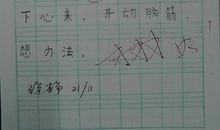 下心来，开动脑筋
想办法。
21/11